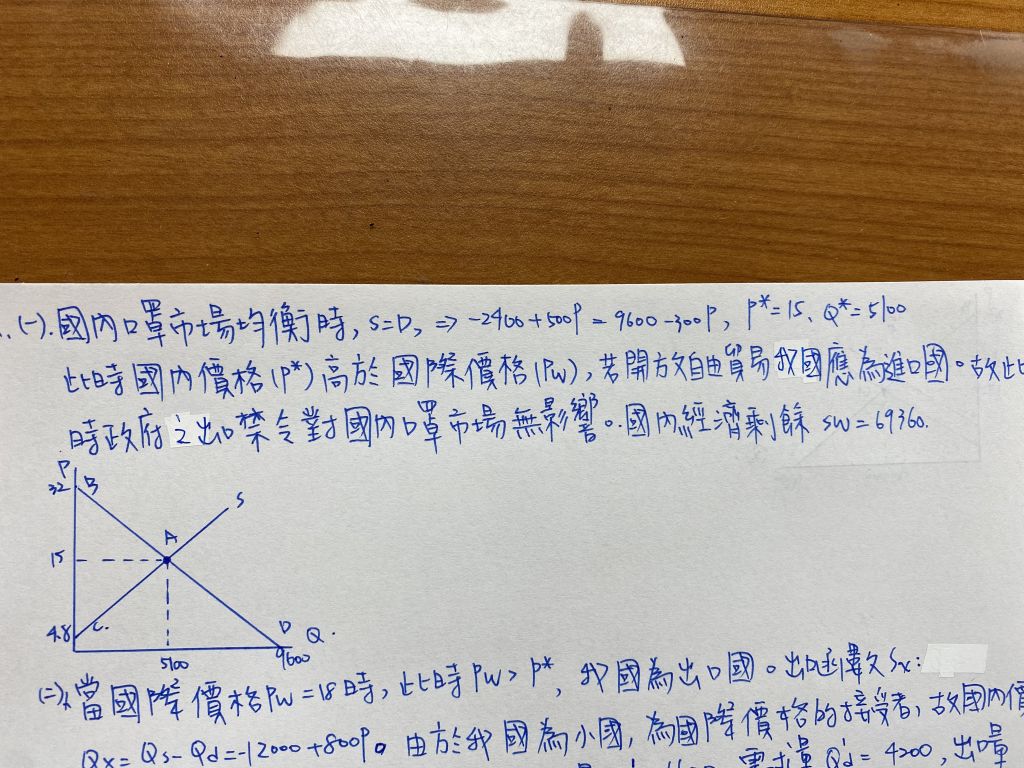 (一).國內口罩市場均衡時, S=D, => -2400+500P = 9600-300P, P*=15、Q*=5100
此時國內價格(P*)高於國際價格(Pw),若開放自由貿易我國應為進口國。故此
時政府之出口禁令對國內口罩市場無影響。國內經濟剩餘 SW=69360.
P
32 B
S
A
15
4.8 C.
D Q.
5100 9600
(二).當國際價格Pw=18時,此時Pw>P*, 我國為出口國。出口函數Sx:
Qx=Qs-Qd=-12000+800P。由於我國為小國,為國際價格的接受者,故國內價
需求量Q'd=4200,出口量